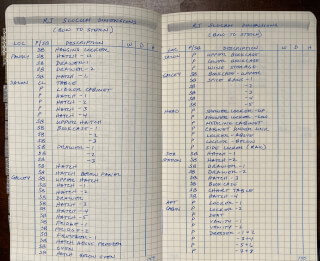 RJ SLOCUM DIMENSIONS
(BOW TO STERN)
LOC P/SB DESCRIPTION W D H
SB HANGING LOCKER
SB HATCH - U
SB DRAWER - 1
SB DRAWER - 2
SB HATCH - 1
SALON CL TABLE
P LIQUOR CABINET
P HATCH - 1
P HATCH - 2
P HATCH - 3
P HATCH - 4
SB UPPER HATCH
SB BOOKCASE - 1
SB - 2
SB - 3
SB DRAWER - 1
SB - 2
SB - 3
SB HATCH
SB HATCH BEHIND PANEL
GALLEY SB UPPER HATCH
SB HATCH - 1
SB HATCH - 2
SB DRAWER
SB HATCH - 3
SB HATCH - 4
SB HATCH - 5
P FRIDGE - 1
P FRIDGE - 2
SB
SB HATCH ABOVE
SB OVEN
SB HATCH BELOW OVEN
RJ SLOCUM DIMENSIONS
(BOW TO STERN)
LOC P/SB DESCRIPTION W D H
SALON P UPPER BOOKCASE
P LOWER BOOKCASE
P WINE STORAGE
GALLEY SB BOOKCASE - UPPER
SB SPICE RACK - 1
SB - 2
SB - 3
SB - 4
SB - 5
HEAD P SHOWER LOCKER - UP
P SHOWER LOCKER - LOW
P MEDICINE CABINET
P CABINET UNDER SINK
P LOCKER - ABOVE
P LOCKER - BELOW
P SIDE LOCKER (P&L)
SB HATCH - 1
STATION SB HATCH - 2
SB DRAWER - 1
SB DRAWER - 2
SB HATCH - 3
SB BOOKCASE
SB CHART TABLE
SB HATCH - 4
AFT P LOCKER - 1
CABIN P LOCKER - 2
P SEAT
P VANITY - 1
P VANITY - 2
P DRAWER - 1+2
P - 3+4
P - 5+6
P - 7+8